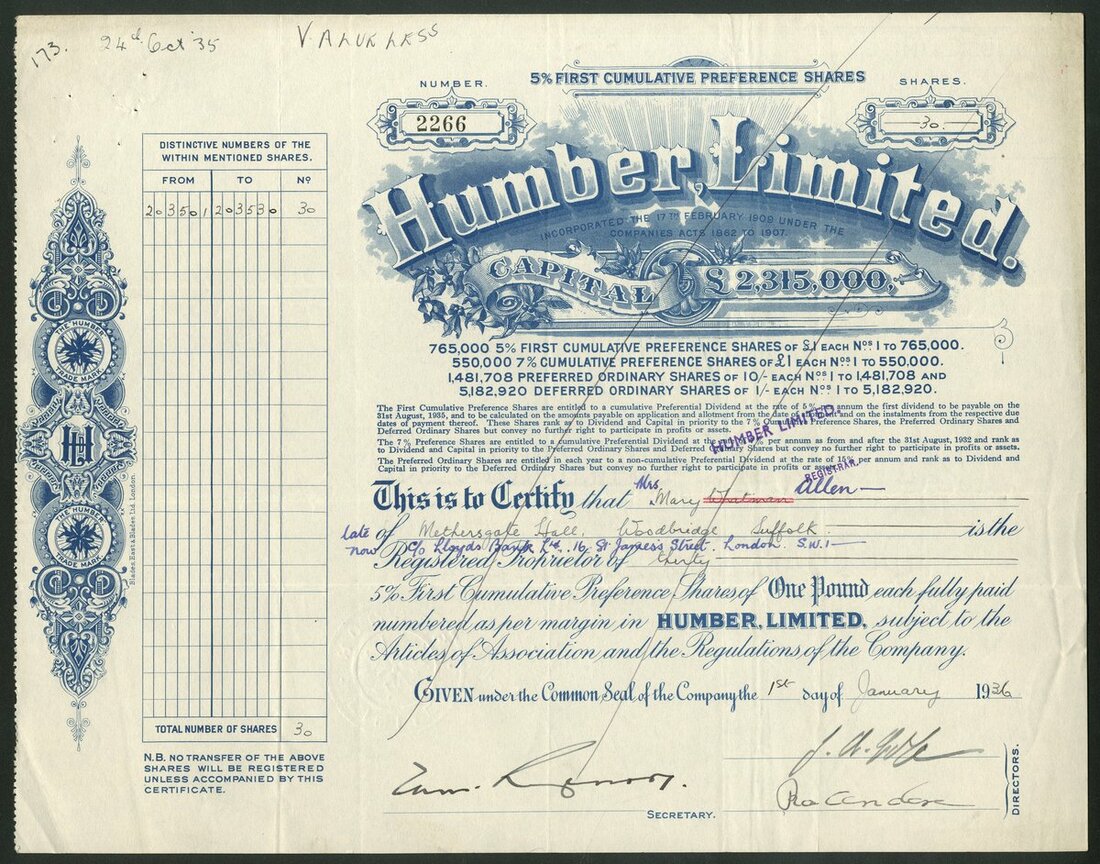 173. 24th Oct '35 VALUELESS
NUMBER.
2266
5% FIRST CUMULATIVE PREFERENCE SHARES
SHARES.
30.
Humber, Limited.
INCORPORATED THE 17TH FEBRUARY 1909 UNDER THE
COMPANIES ACTS 1862 TO 1907.
CAPITAL £2,315,000,
765,000 5% FIRST CUMULATIVE PREFERENCE SHARES OF £1 EACH Nos 1 TO 765,000.
550,000 7% CUMULATIVE PREFERENCE SHARES OF £1 EACH Nos 1 TO 550,000.
1,481,708 PREFERRED ORDINARY SHARES OF 10/- EACH Nos 1 TO 1,481,708 AND
5,182,920 DEFERRED ORDINARY SHARES OF 1/- EACH Nos 1 TO 5,182,920.
The First Cumulative Preference Shares are entitled to a cumulative Preferential Dividend at the rate of 5% per annum the first dividend to be payable on the
31st August, 1935, and to be calculated on the amounts payable on application and allotment from the date of allotment and on the instalments from the respective due
dates of payment thereof. These Shares rank as to Dividend and Capital in priority to the 7% Cumulative Preference Shares, the Preferred Ordinary Shares and
Deferred Ordinary Shares but convey no further right to participate in profits or assets.
The 7% Preference Shares are entitled to a cumulative Preferential Dividend at the rate of 7% per annum as from and after the 31st August, 1932 and rank as
to Dividend and Capital in priority to the Preferred Ordinary Shares and Deferred Ordinary Shares but convey no further right to participate in profits or assets.
The Preferred Ordinary Shares are entitled in each year to a non-cumulative Preferential Dividend at the rate of 15% per annum and rank as to Dividend and
Capital in priority to the Deferred Ordinary Shares but convey no further right to participate in profits or assets.
HUMBER LIMITED.
REGISTRAR.
This is to Certify that Mrs Mary Whitman Allen
late of Methersgate Hall, Woodbridge Suffolk is the
now C/o Lloyds Bank Ltd. 16, St James's Street. London. S.W.1
Registered Proprietor of thirty
5% First Cumulative Preference Shares of One Pound each fully paid
numbered as per margin in HUMBER, LIMITED, subject to the
Articles of Association and the Regulations of the Company.
GIVEN under the Common Seal of the Company the 1st day of January 1936
SECRETARY.
DIRECTORS.
DISTINCTIVE NUMBERS OF THE
WITHIN MENTIONED SHARES.
FROM TO No
203501 203530 30
TOTAL NUMBER OF SHARES 30
N.B. NO TRANSFER OF THE ABOVE
SHARES WILL BE REGISTERED
UNLESS ACCOMPANIED BY THIS
CERTIFICATE.
THE HUMBER
TRADE MARK
HL
THE HUMBER
TRADE MARK
Blades, East & Blades Ltd. London.